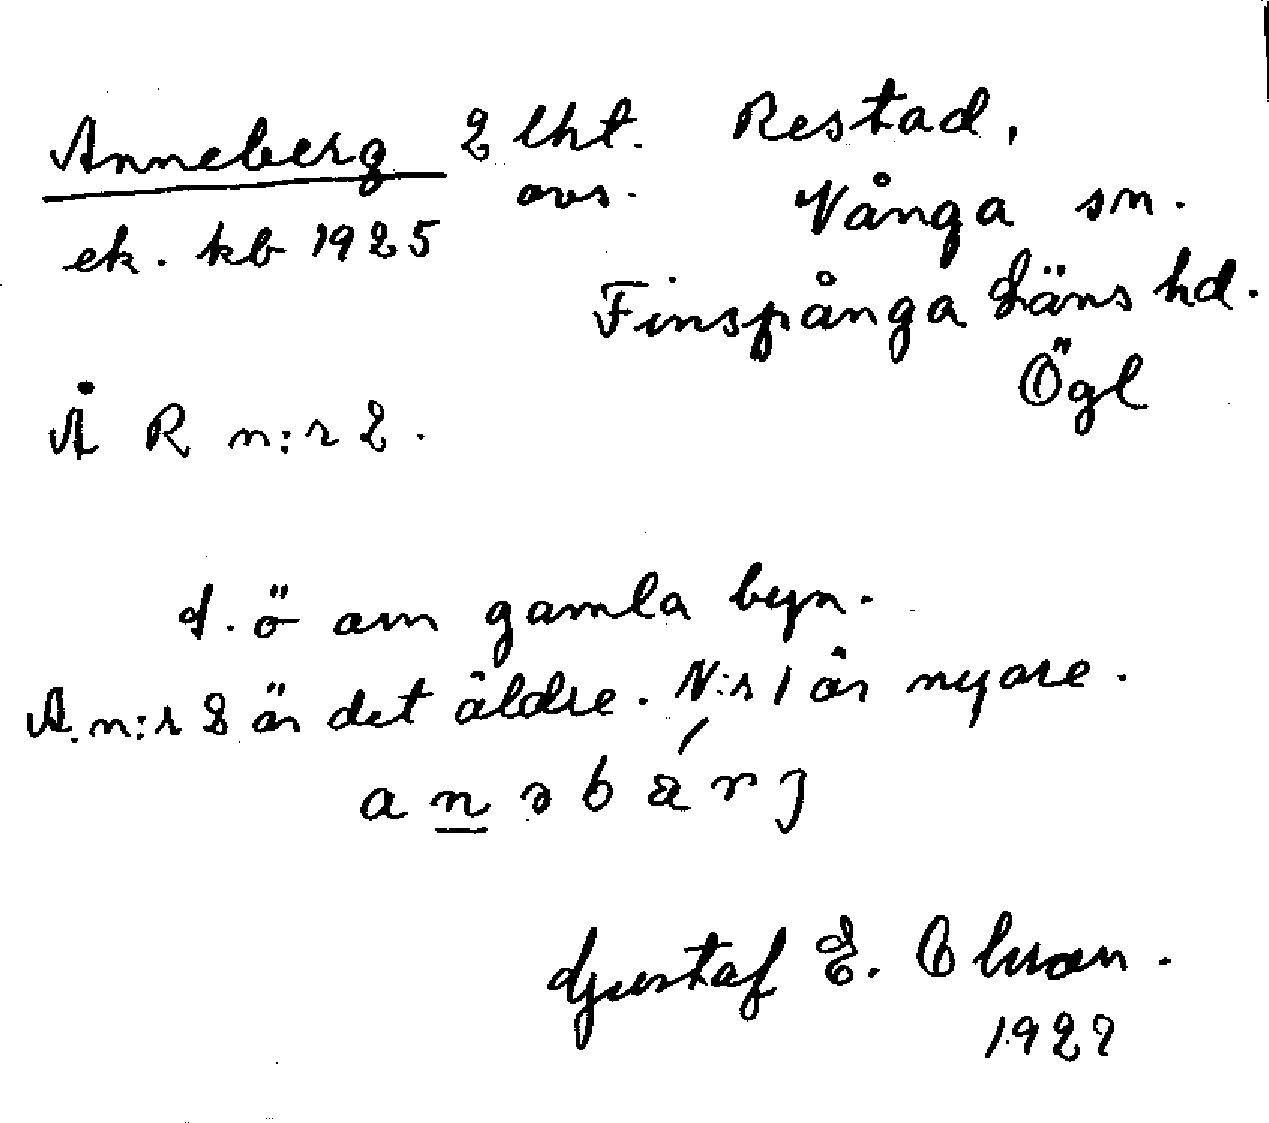 Anneberg 2 lht. Restad,
avs. Vånga sn.
ek. kb 1925
Finspånga Läns hd.
Ögl
Å R n:r 2.
S. ö om gamla byn.
A. n:r 2 är det äldre. N:r 1 är nyare.
a n ə b ä́ r j
Gustaf E. Olsson.
1927